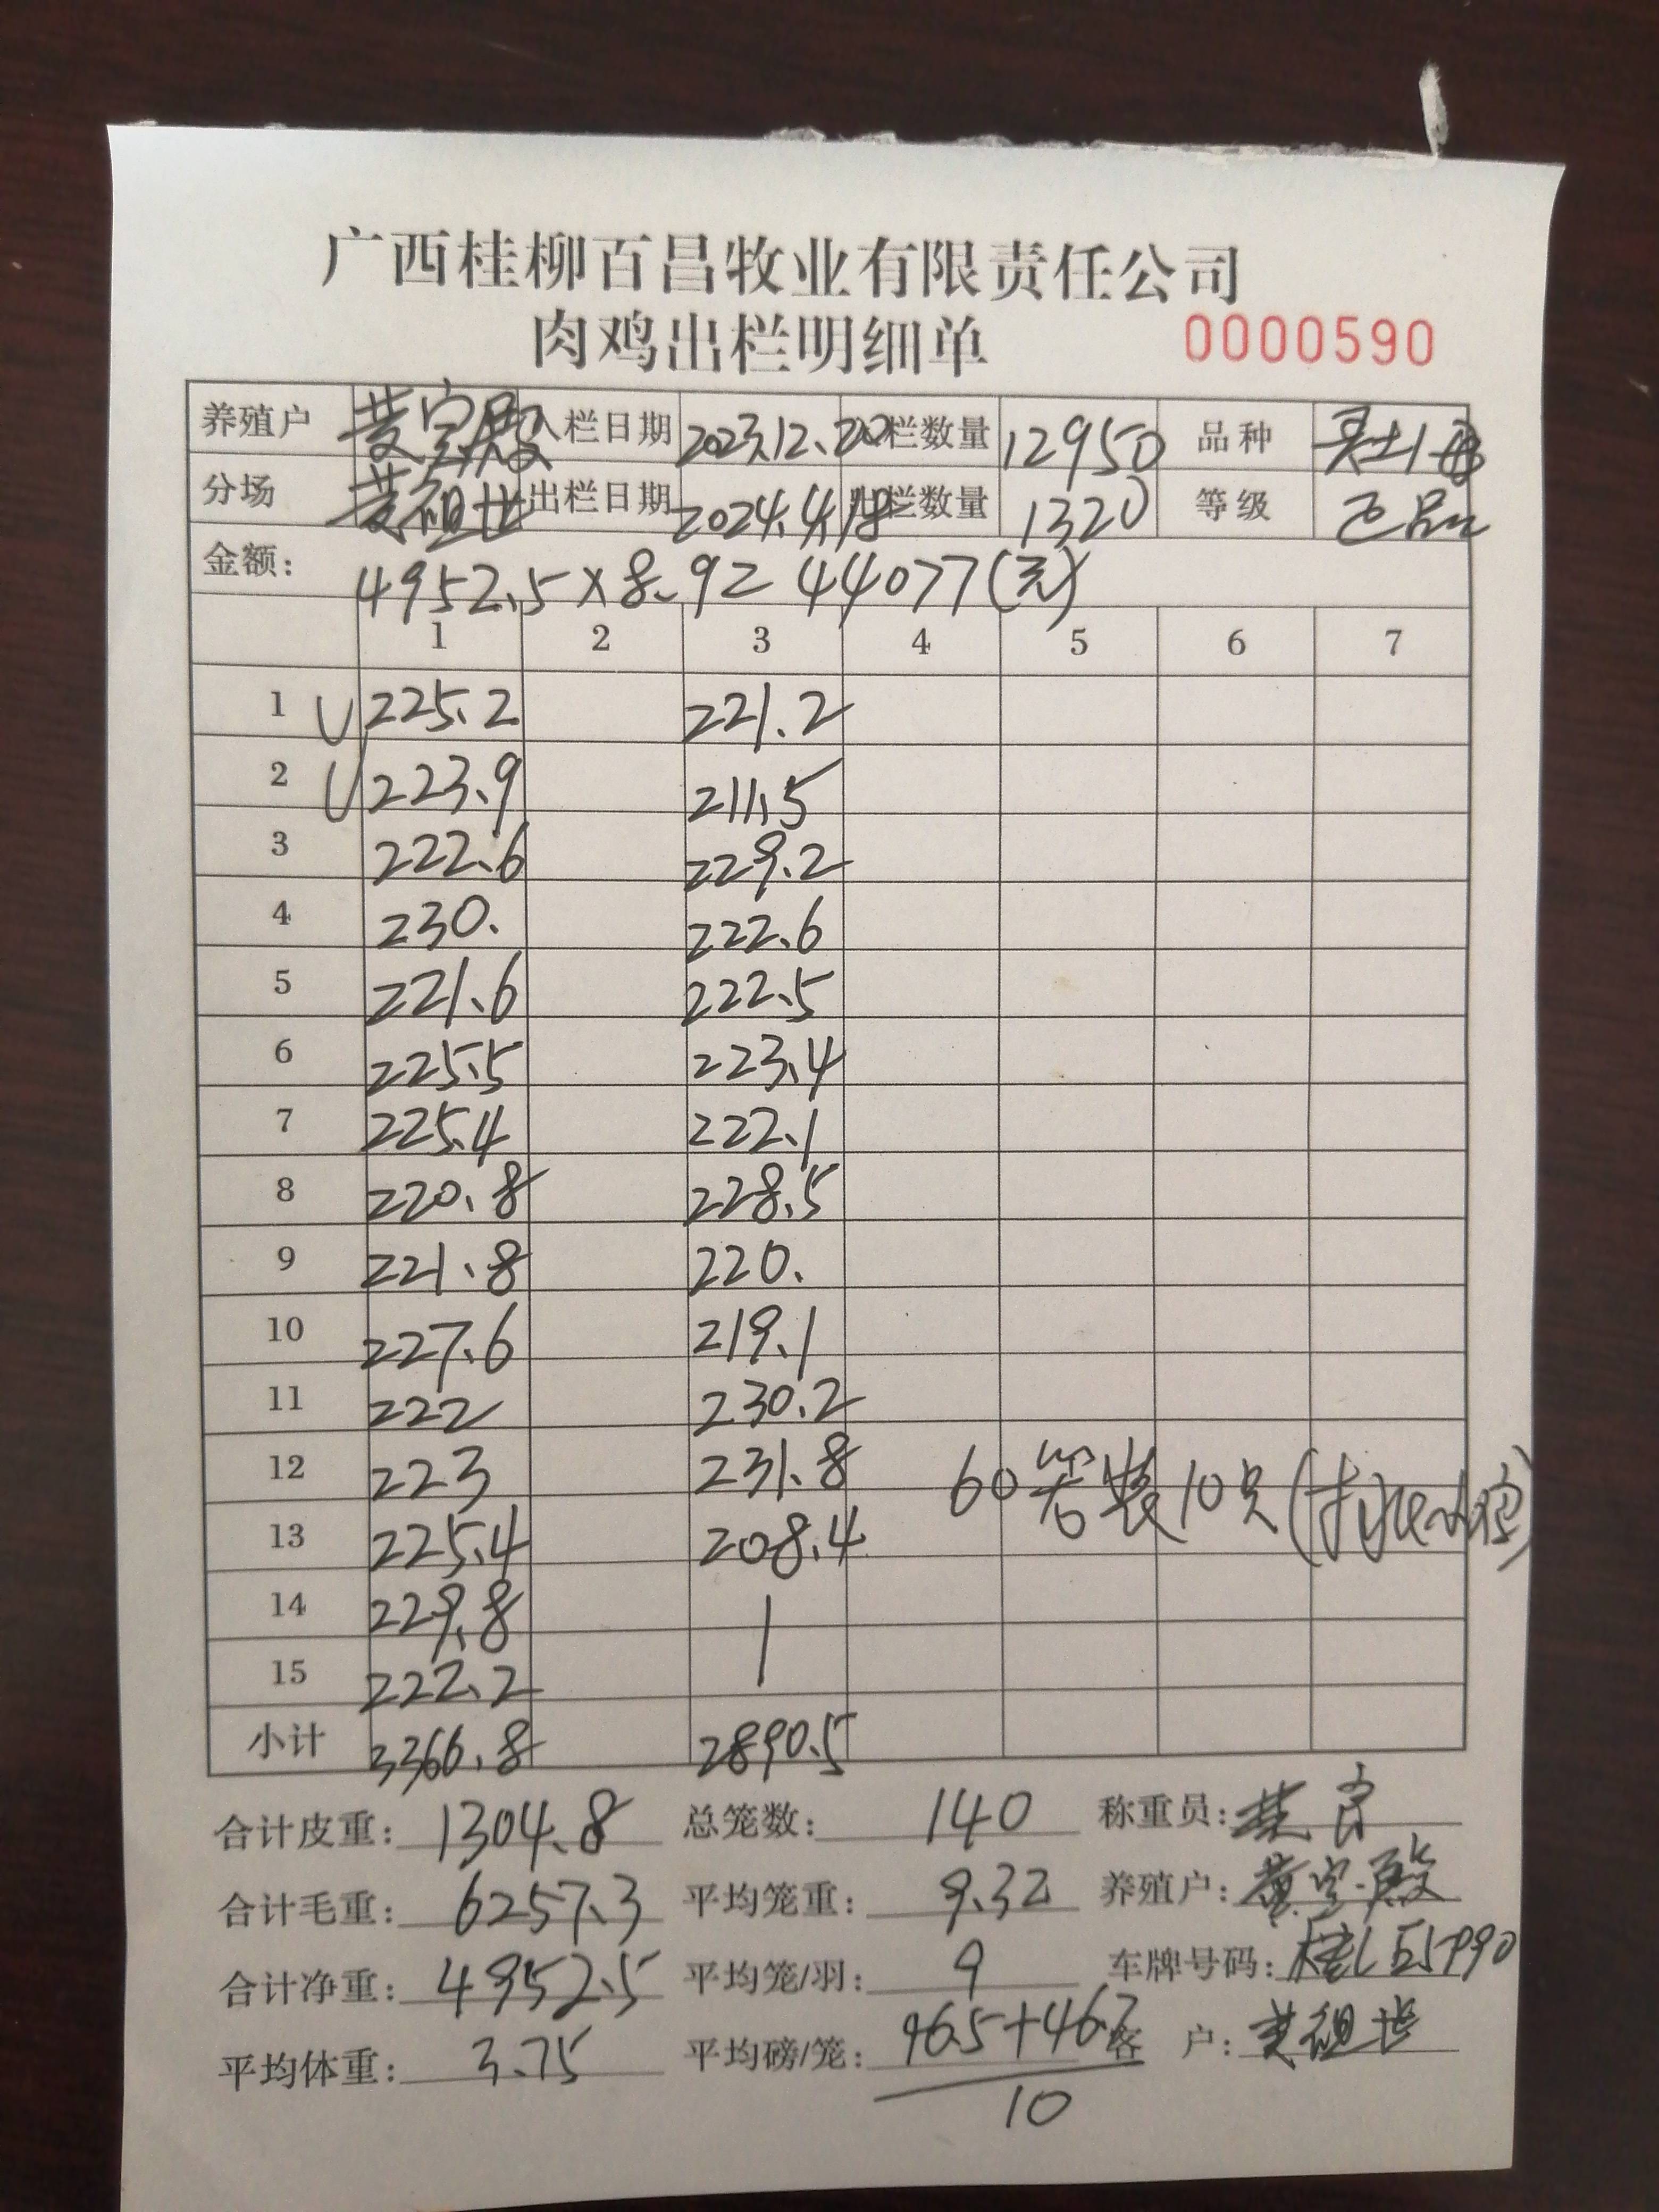 广西桂柳百昌牧业有限责任公司
肉鸡出栏明细单 0000590
养殖户 黄宝殿 入栏日期 2023.12.20 栏数量 12950 品种
分场 黄祖世 出栏日期 2024.4.18 出栏数量 1320 等级 正品
金额: 4952.5×8.9= 44077(元)
1 2 3 4 5 6 7
1 225.2 221.2
2 223.9 211.5
3 222.6 229.2
4 230. 222.6
5 221.6 222.5
6 225.5 223.4
7 225.4 222.1
8 220.8 228.5
9 221.8 220.
10 227.6 219.1
11 222 230.2
12 223 231.8 60 装10只
13 225.4 208.4
14 229.8
15 222.2
小计 3366.8 2890.5
合计皮重: 1304.8 总笼数: 140 称重员:
合计毛重: 6257.3 平均笼重: 9.32 养殖户: 黄宝殿
合计净重: 4952.5 平均笼/羽: 9 车牌号码:
平均体重: 3.75 平均磅/笼: 46.5+46.7 客 户: 黄祖世
10